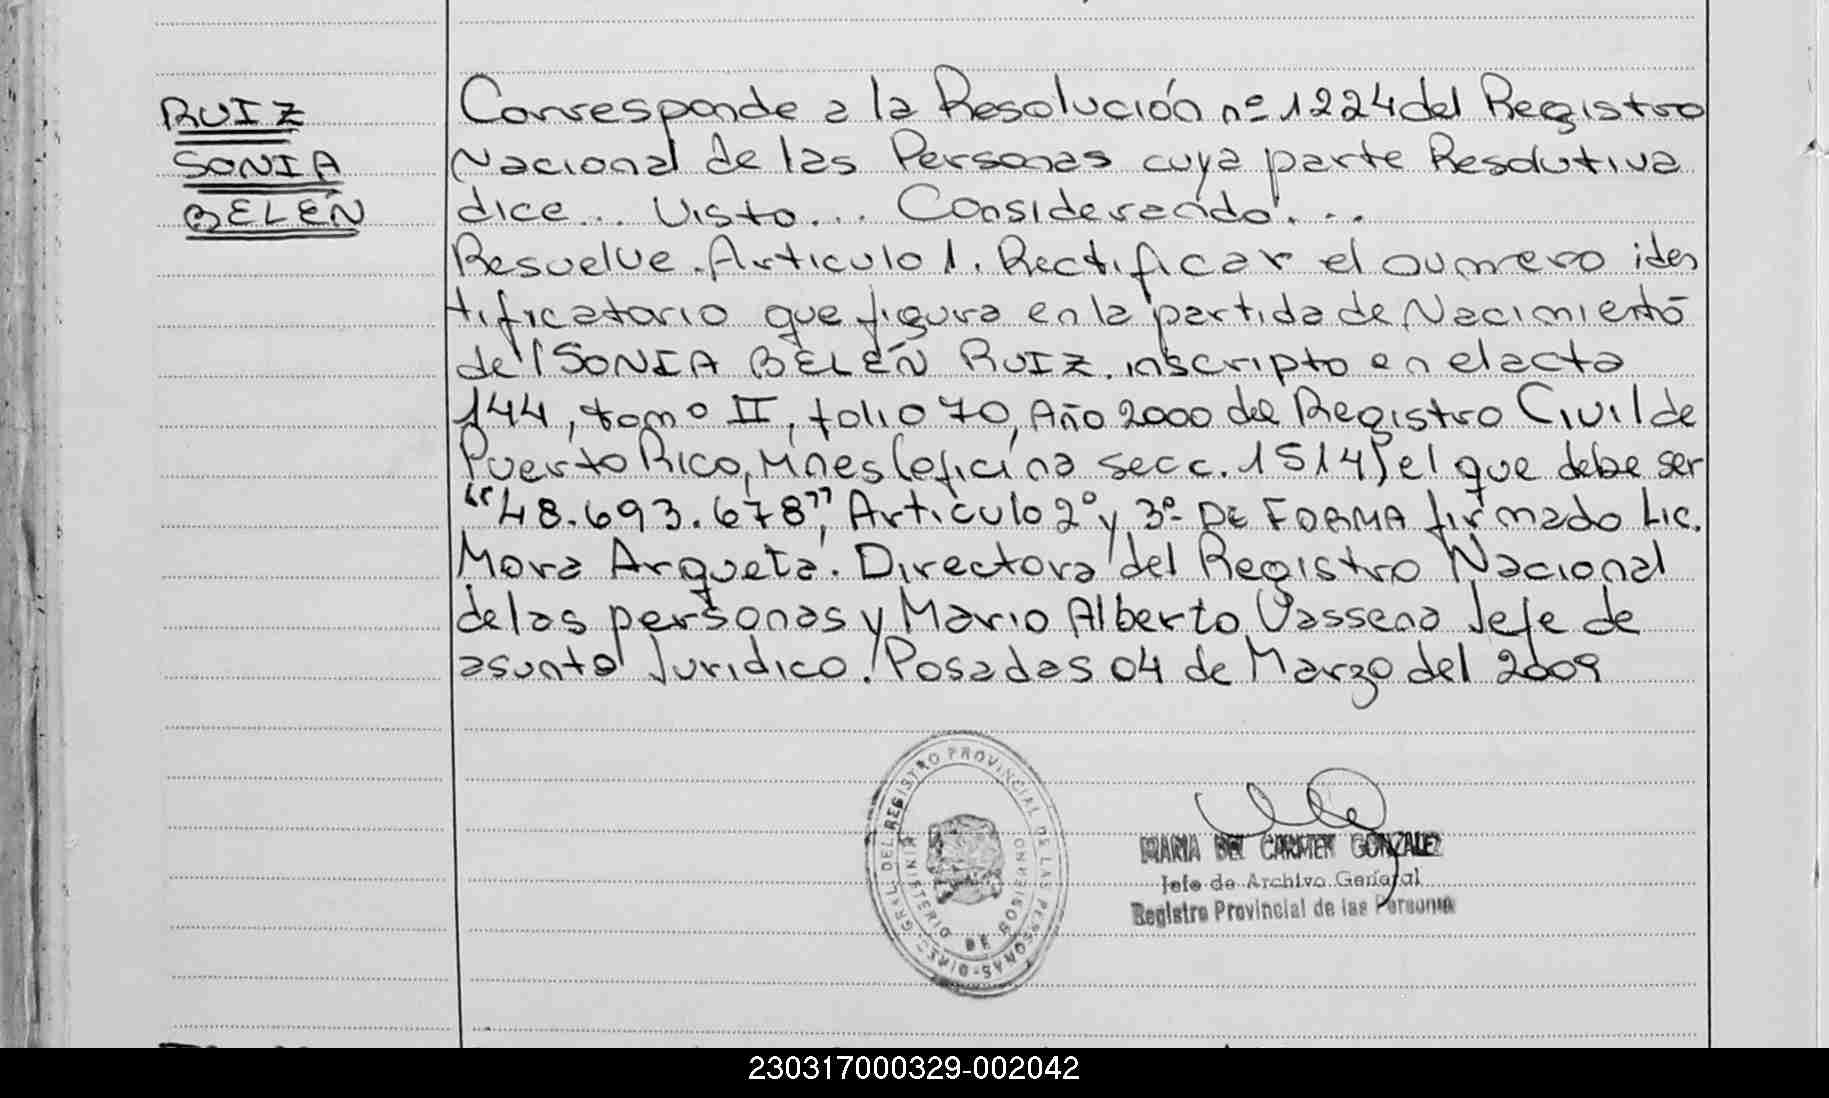 RUIZ
SONIA
BELÉN
Corresponde a la Resolución nº 1224 del Registro
Nacional de las Personas cuya parte Resolutiva
dice... Visto... Considerando...
Resuelve. Articulo 1. Rectificar el numero iden
tificatorio que figura en la partida de Nacimiento
de SONIA BELÉN RUIZ. inscripto en el acta
144, tomo II, folio 70, Año 2000 del Registro Civil de
Puerto Rico, Mnes (oficina secc. 1514) el que debe ser
"48.693.678", Artículo 2º y 3º DE FORMA firmado Lic.
Mora Arqueta. Directora del Registro Nacional
de las personas y Mario Alberto Vassena Jefe de
asunto Juridico. Posadas 04 de Marzo del 2009
DIREC. GRAL. DEL REGISTRO PROVINCIAL DE LAS PERSONAS
MINISTERIO DE GOBIERNO
MARIA DEL CARMEN GONZALEZ
Jefe de Archivo General
Registro Provincial de las Personas
230317000329-002042